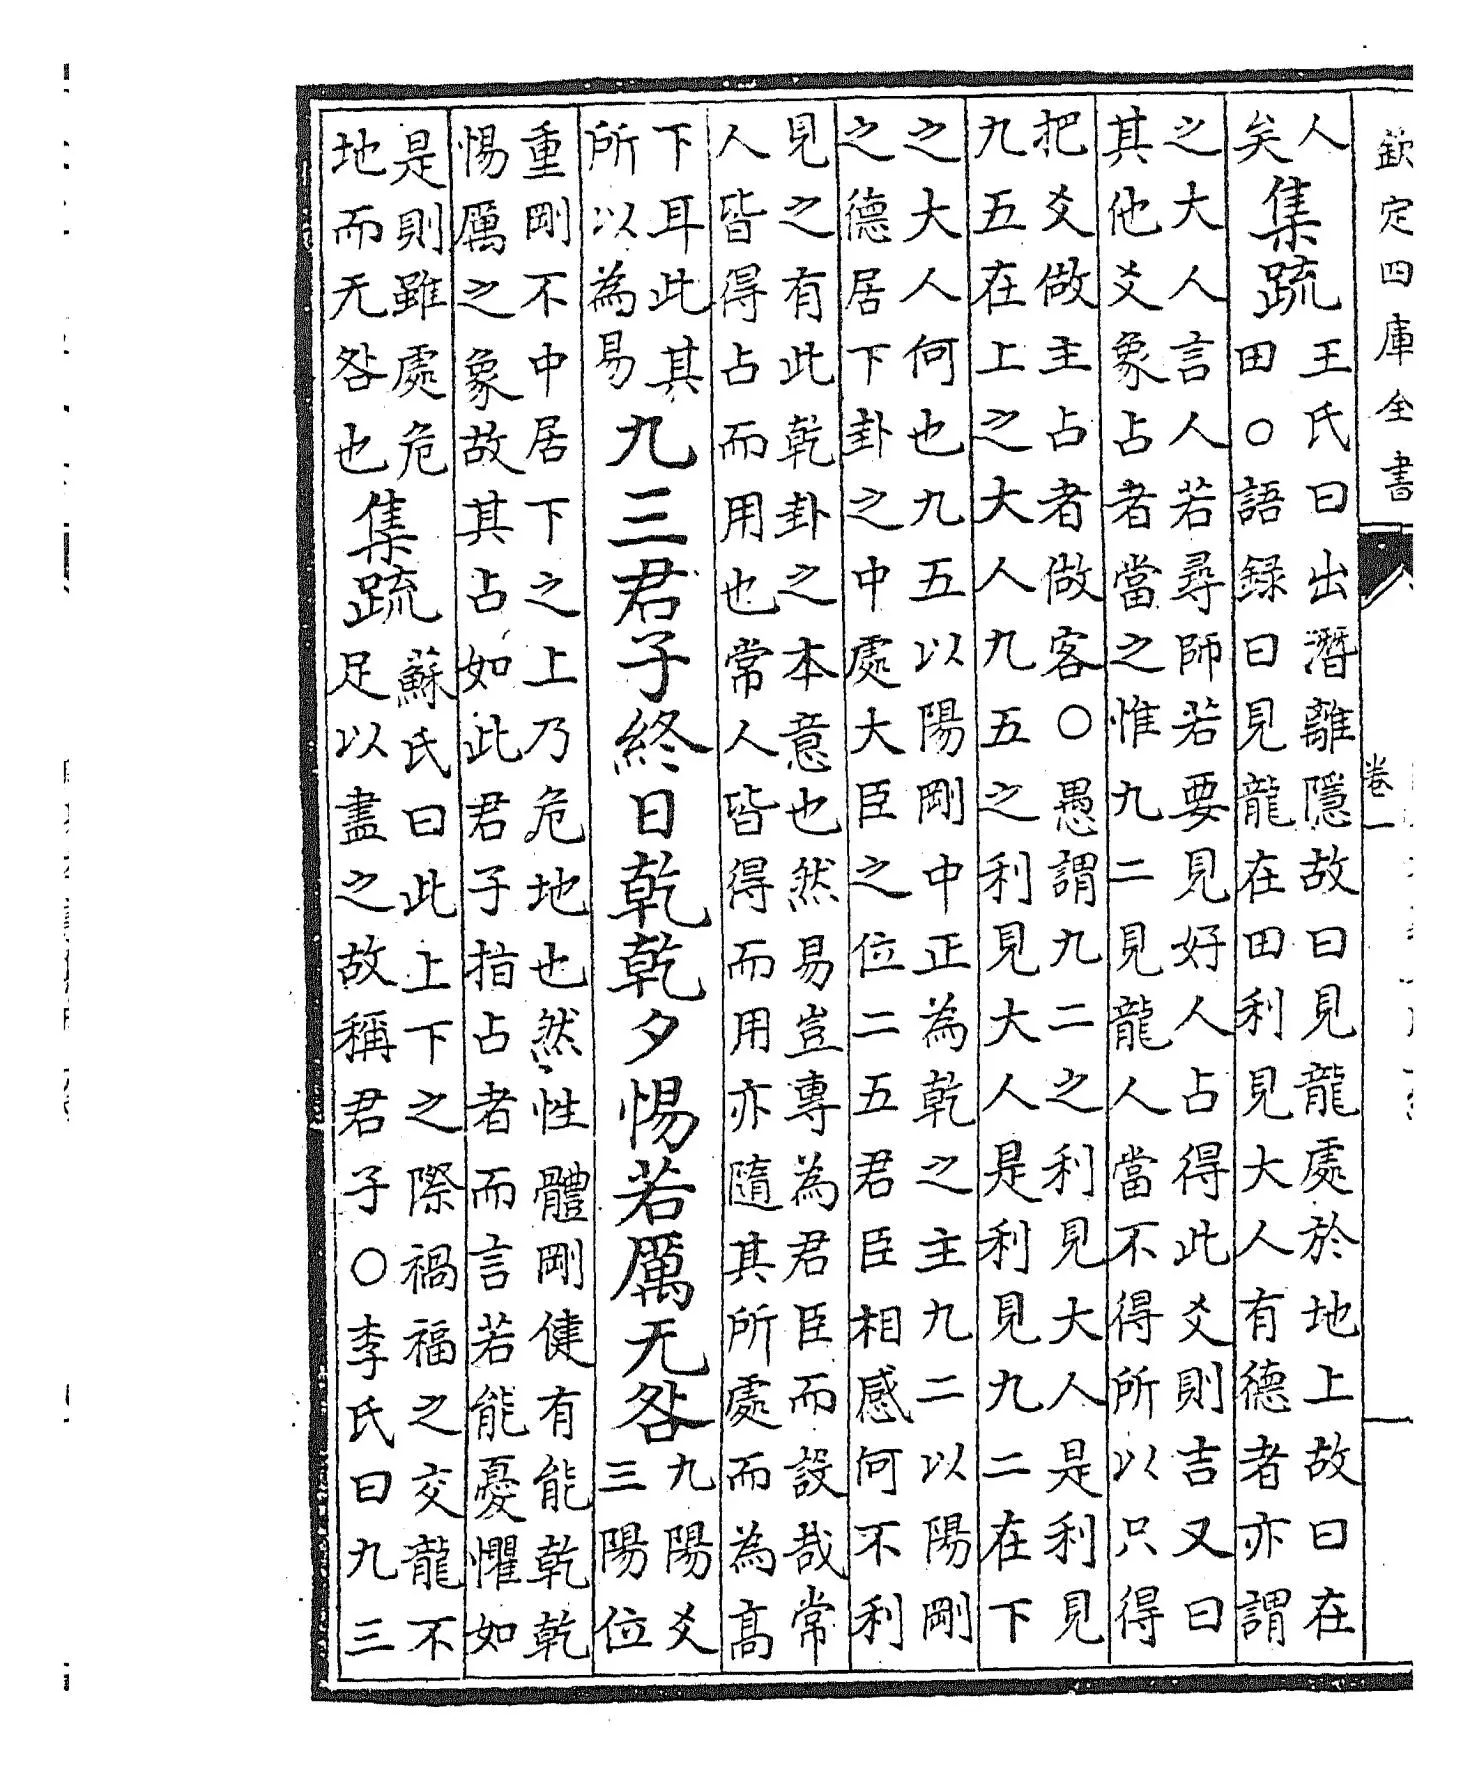 欽定四庫全書
卷一
人
矣
集疏
王氏曰出潛離隱故曰見龍處於地上故曰在
田○語録曰見龍在田利見大人有德者亦謂
之大人言人若尋師若要見好人占得此爻則吉又曰
其他爻象占者當之惟九二見龍人當不得所以只得
把爻做主占者做客○愚謂九二之利見大人是利見
九五在上之大人九五之利見大人是利見九二在下
之大人何也九五以陽剛中正為乾之主九二以陽剛
之德居下卦之中處大臣之位二五君臣相感何不利
見之有此乾卦之本意也然易豈專為君臣而設哉常
人皆得占而用也常人皆得而用亦隨其所處而為高
下耳此其
所以為易
九三君子終日乾乾夕惕若厲无咎
九陽爻
三陽位
重剛不中居下之上乃危地也然性體剛健有能乾乾
惕厲之象故其占如此君子指占者而言若能憂懼如
是則雖處危
地而无咎也
集疏
蘇氏曰此上下之際禍福之交龍不
足以盡之故稱君子○李氏曰九三